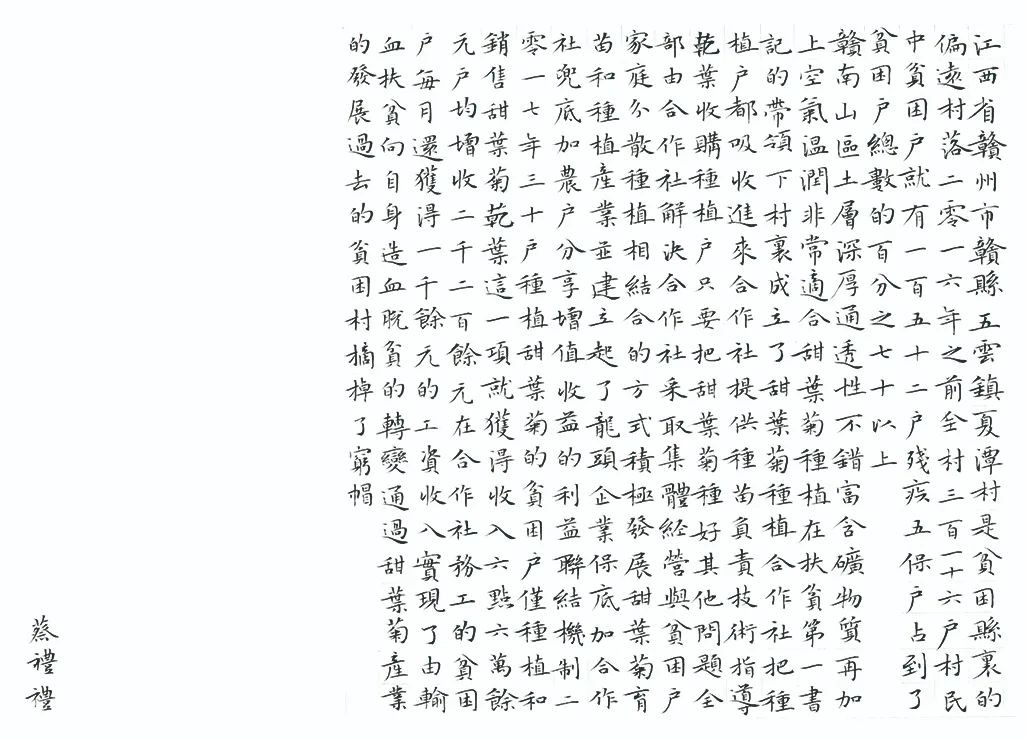 江西省贛州市贛縣五雲鎮夏潭村是貧困縣裏的
偏遠村落二零一六年之前全村三百一十六户村民
中貧困户就有一百五十二户殘疾五保户占到了
貧困户總數的百分之七十以上
贛南山區土層深厚通透性不錯富含礦物質再加
上空氣溫潤非常適合甜葉菊種植在扶貧第一書
記的帶領下村裏成立了甜葉菊種植合作社把種
植户都吸收進來合作社提供種苗負責技術指導
乾葉收購種植户只要把甜葉菊種好其他問題全
部由合作社解決合作社采取集體經營與貧困户
家庭分散種植相結合的方式積極發展甜葉菊育
苗和種植產業並建立起了龍頭企業保底加合作
社兜底加農户分享增值收益的利益聯結機制二
零一七年三十户種植甜葉菊的貧困户僅種植和
銷售甜葉菊乾葉這一項就獲得收入六點六萬餘
元户均增收二千二百餘元在合作社務工的貧困
户每月還獲得一千餘元的工資收入實現了由輸
血扶貧向自身造血脫貧的轉變通過甜葉菊產業
的發展過去的貧困村摘掉了窮帽
蔡禮禮